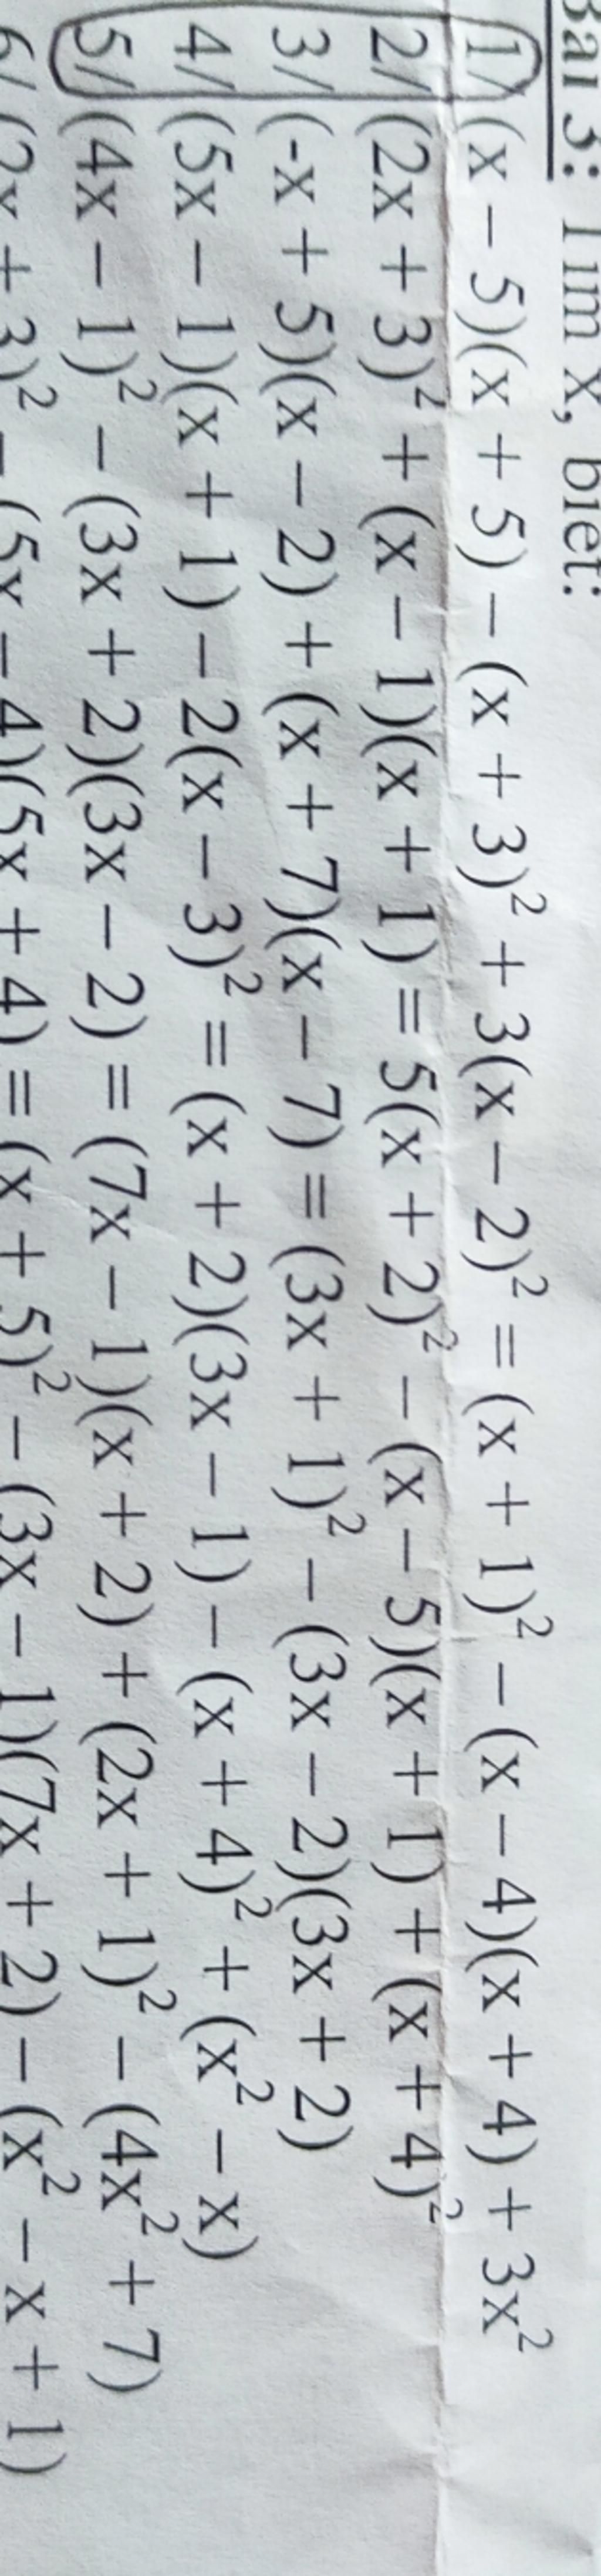 Bài 3: Tìm x, biết:
1/ (x – 5)(x + 5) – (x + 3)² + 3(x – 2)² = (x + 1)² – (x – 4)(x + 4) + 3x²
2/ (2x + 3)² + (x – 1)(x + 1) = 5(x + 2)² – (x – 5)(x + 1) + (x + 4)²
3/ (-x + 5)(x – 2) + (x + 7)(x – 7) = (3x + 1)² – (3x – 2)(3x + 2)
4/ (5x – 1)(x + 1) – 2(x – 3)² = (x + 2)(3x – 1) – (x + 4)² + (x² – x)
5/ (4x – 1)² – (3x + 2)(3x – 2) = (7x – 1)(x + 2) + (2x + 1)² – (4x² + 7)
6/ (2x + 3)² – (5x – 4)(5x + 4) = (x + 5)² – (3x – 1)(7x + 2) – (x² – x + 1)